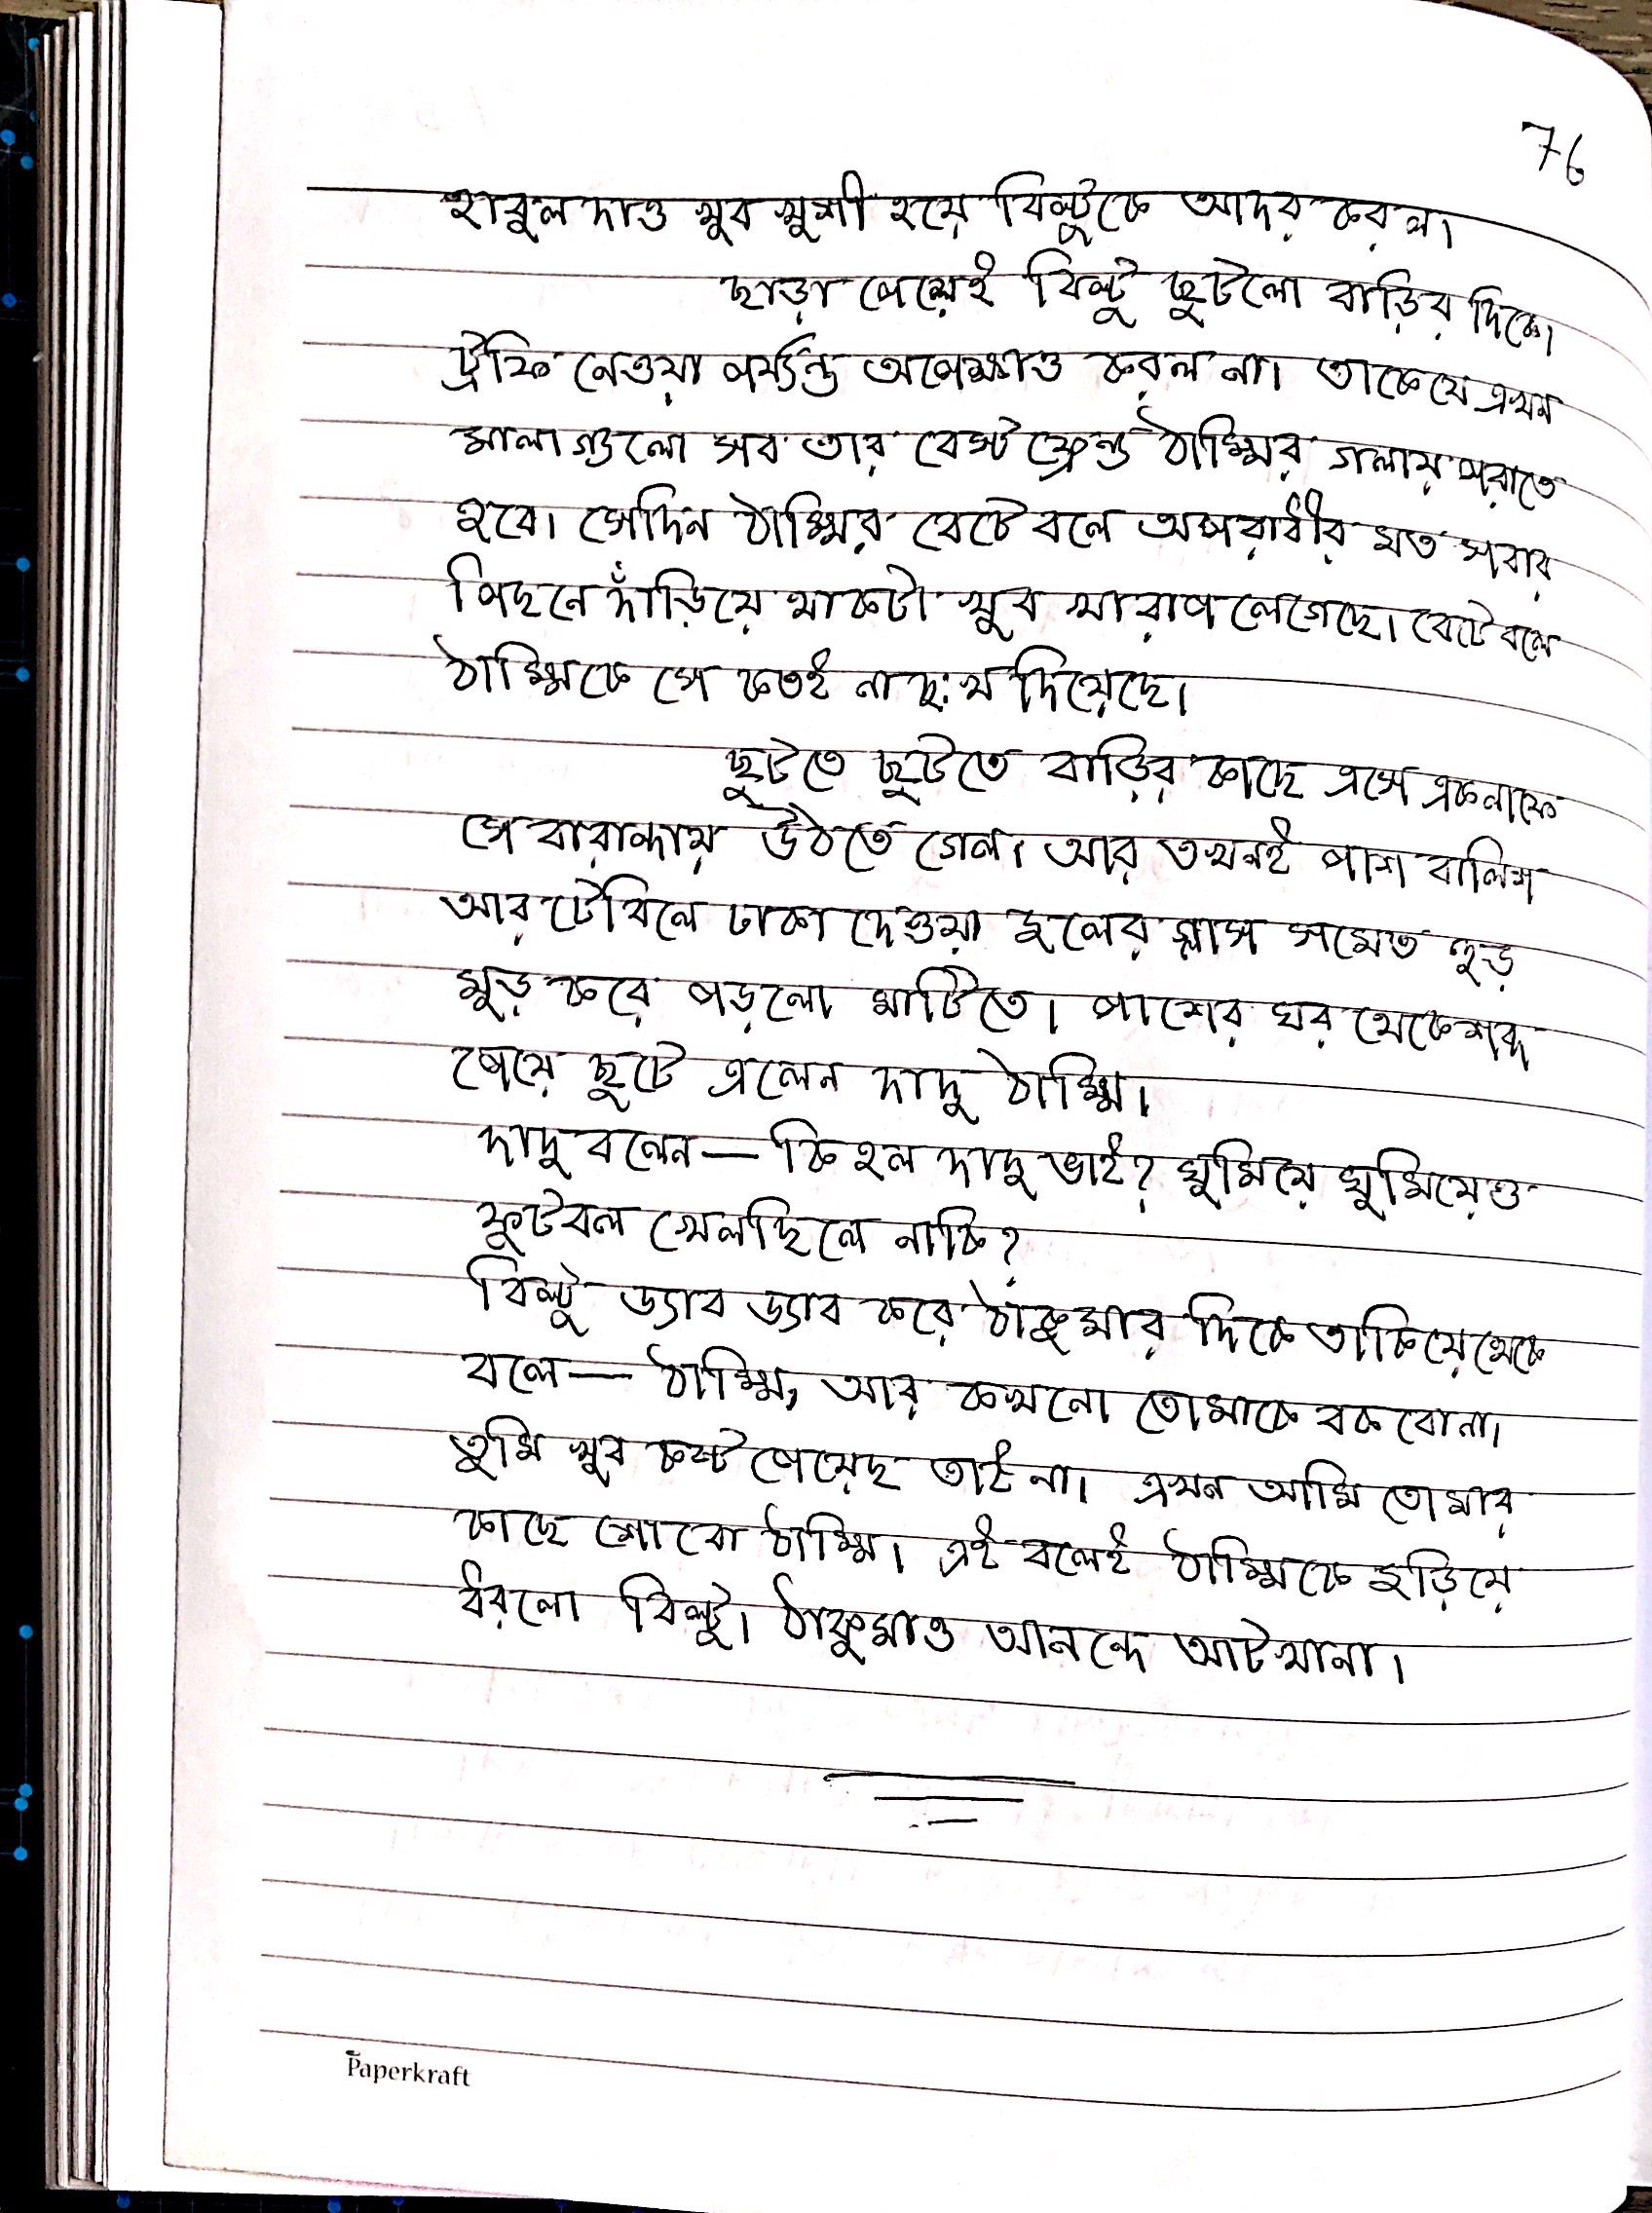 76
হাবুলদাও খুব খুশী হয়ে বিল্টুকে আদর করল।
ছাড়া পেয়েই বিল্টু ছুটলো বাড়ির দিকে।
ট্রফি নেওয়া পর্য্যন্ত অপেক্ষাও করল না। তাকে যে এখন
মালাগুলো সব তার বেস্ট ফ্রেন্ড ঠাম্মির গলায় পরাতে
হবে। সেদিন ঠাম্মির বেটে বলে অপরাধীর মত সবার
পিছনে দাঁড়িয়ে থাকটা খুব খারাপ লেগেছে। বেটে বলে
ঠাম্মিকে সে কতই না দুঃখ দিয়েছে।
ছুটতে ছুটতে বাড়ির কাছে এসে একলাফে
সে বারান্দায় উঠতে গেল। আর তখনই পাশ বালিশ
আর টেবিলে ঢাকা দেওয়া জলের গ্লাস সমেত হুড়
মুড় করে পড়লো মাটিতে। পাশের ঘর থেকে শব্দ
পেয়ে ছুটে এলেন দাদু ঠাম্মি।
দাদু বলেন— কি হল দাদু ভাই? ঘুমিয়ে ঘুমিয়েও
ফুটবল খেলছিলে নাকি?
বিল্টু ড্যাব ড্যাব করে ঠাকুমার দিকে তাকিয়ে থেকে
বলে— ঠাম্মি, আর কখনো তোমাকে বকবোনা।
তুমি খুব কষ্ট পেয়েছ তাই না। এখন আমি তোমার
কাছে শোবো ঠাম্মি। এই বলেই ঠাম্মিকে জড়িয়ে
ধরলো বিল্টু। ঠাকুমাও আনন্দে আটখানা।
Paperkraft